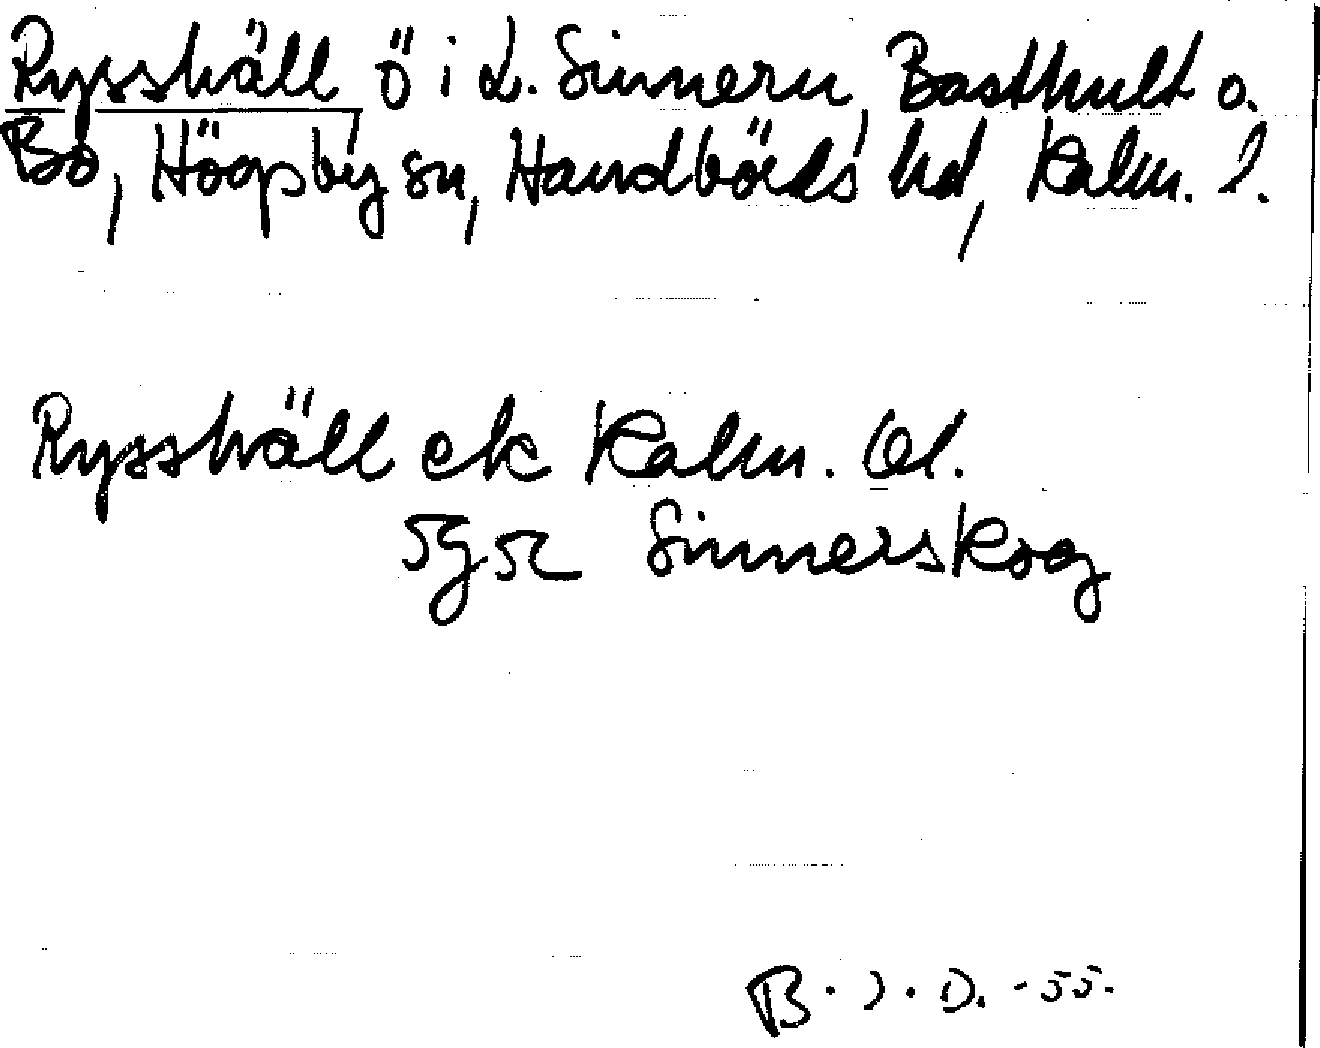 Rysshäll, ö i L. Sinnern, Basthult o.
Bo, Högsby sn, Handbörds hd, Kalm. l.
Rysshäll ek Kalm. 6l.
5g52 Sinnerskog
B. J. D. -55.